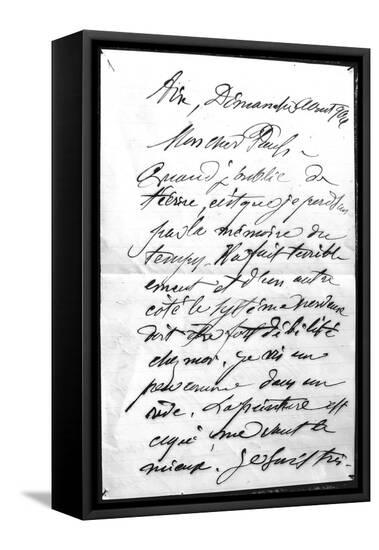 Aix, Dimanche Août 1904
Mon cher Paul,
Quand j'oublie de
t'écrire, c'est que je perds un
peu la mémoire du
temps. Il a fait terrible
ement et d'un autre
côté le système nerveux
doit être fort débilité
chez moi. Je vis un
peu comme dans un
vide. La peinture est
ce qui me vaut le
mieux. Je suis très-